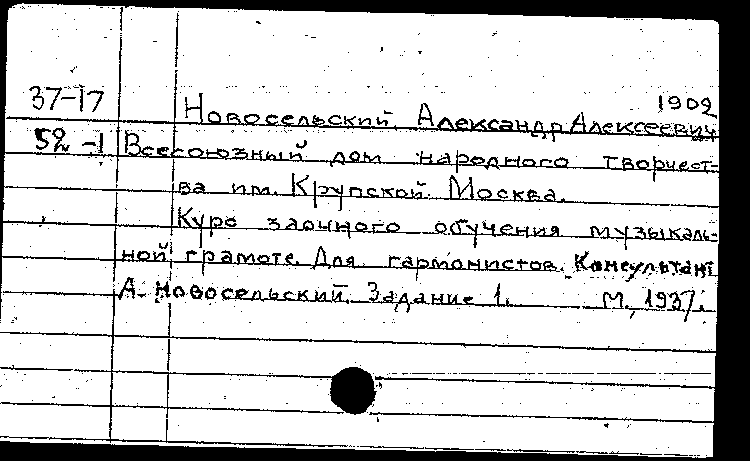 37-17 Новосельский, Александр Алексеевич 1902
52-1 Всесоюзный дом народного творчест-
ва им. Крупской. Москва.
Курс заочного обучения музыкаль-
ной грамоте. Для гармонистов. Консультант
А. Новосельский. Задание 1. М., 1937.